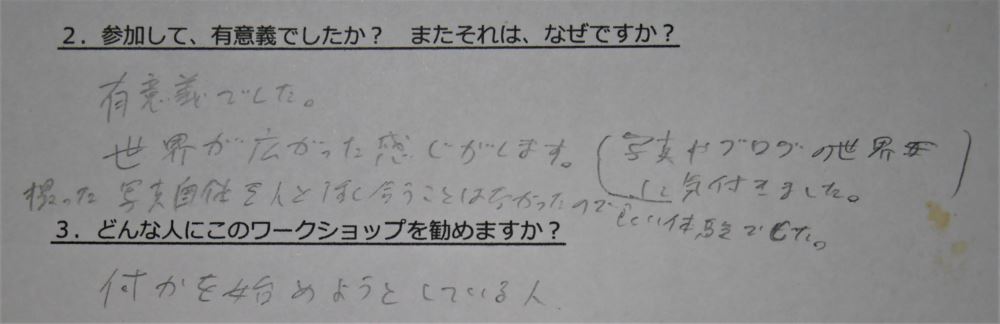 2．参加して、有意義でしたか？　またそれは、なぜですか？
有意義でした。
世界が広がった感じがします。（写真やブログの世界
に気付きました。）
撮った写真自体を人とはなし合うことはなかったので
いい体験でした。
3．どんな人にこのワークショップを勧めますか？
何かを始めようとしている人